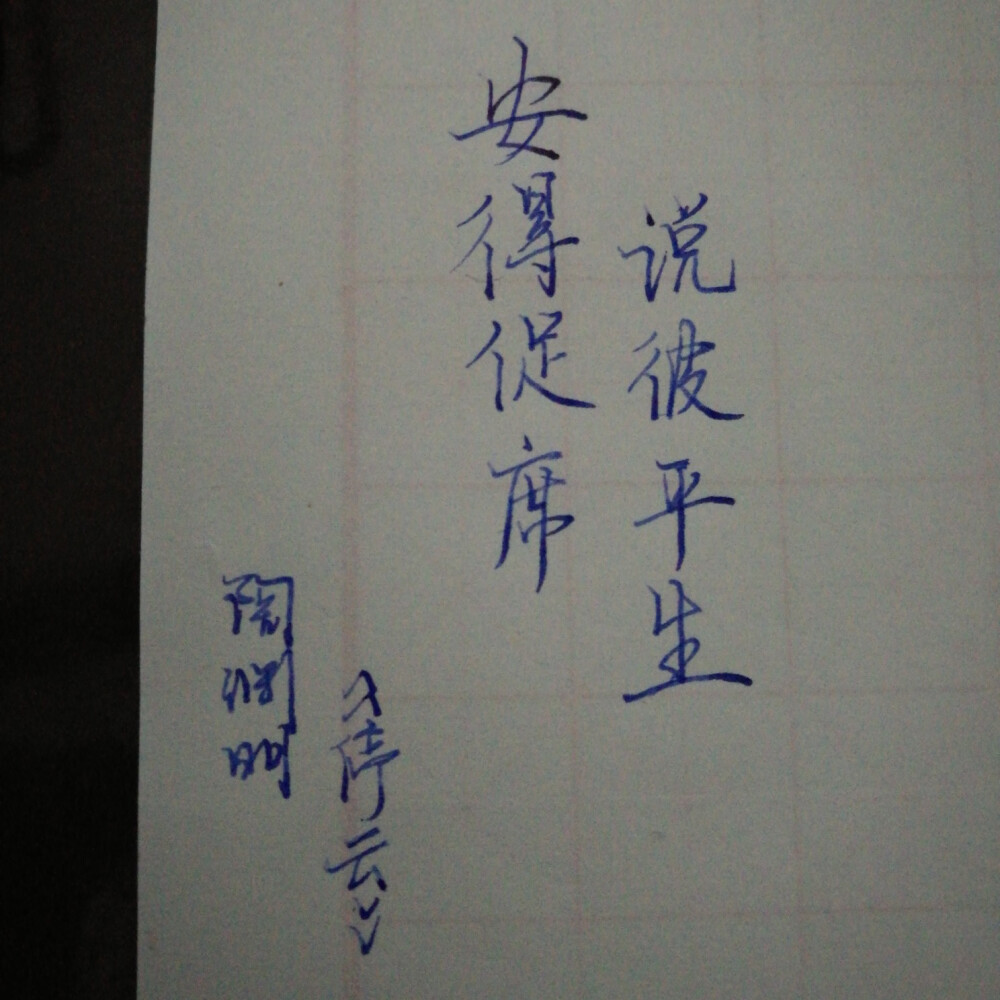 安得促席
说彼平生
陶渊明
《停云》